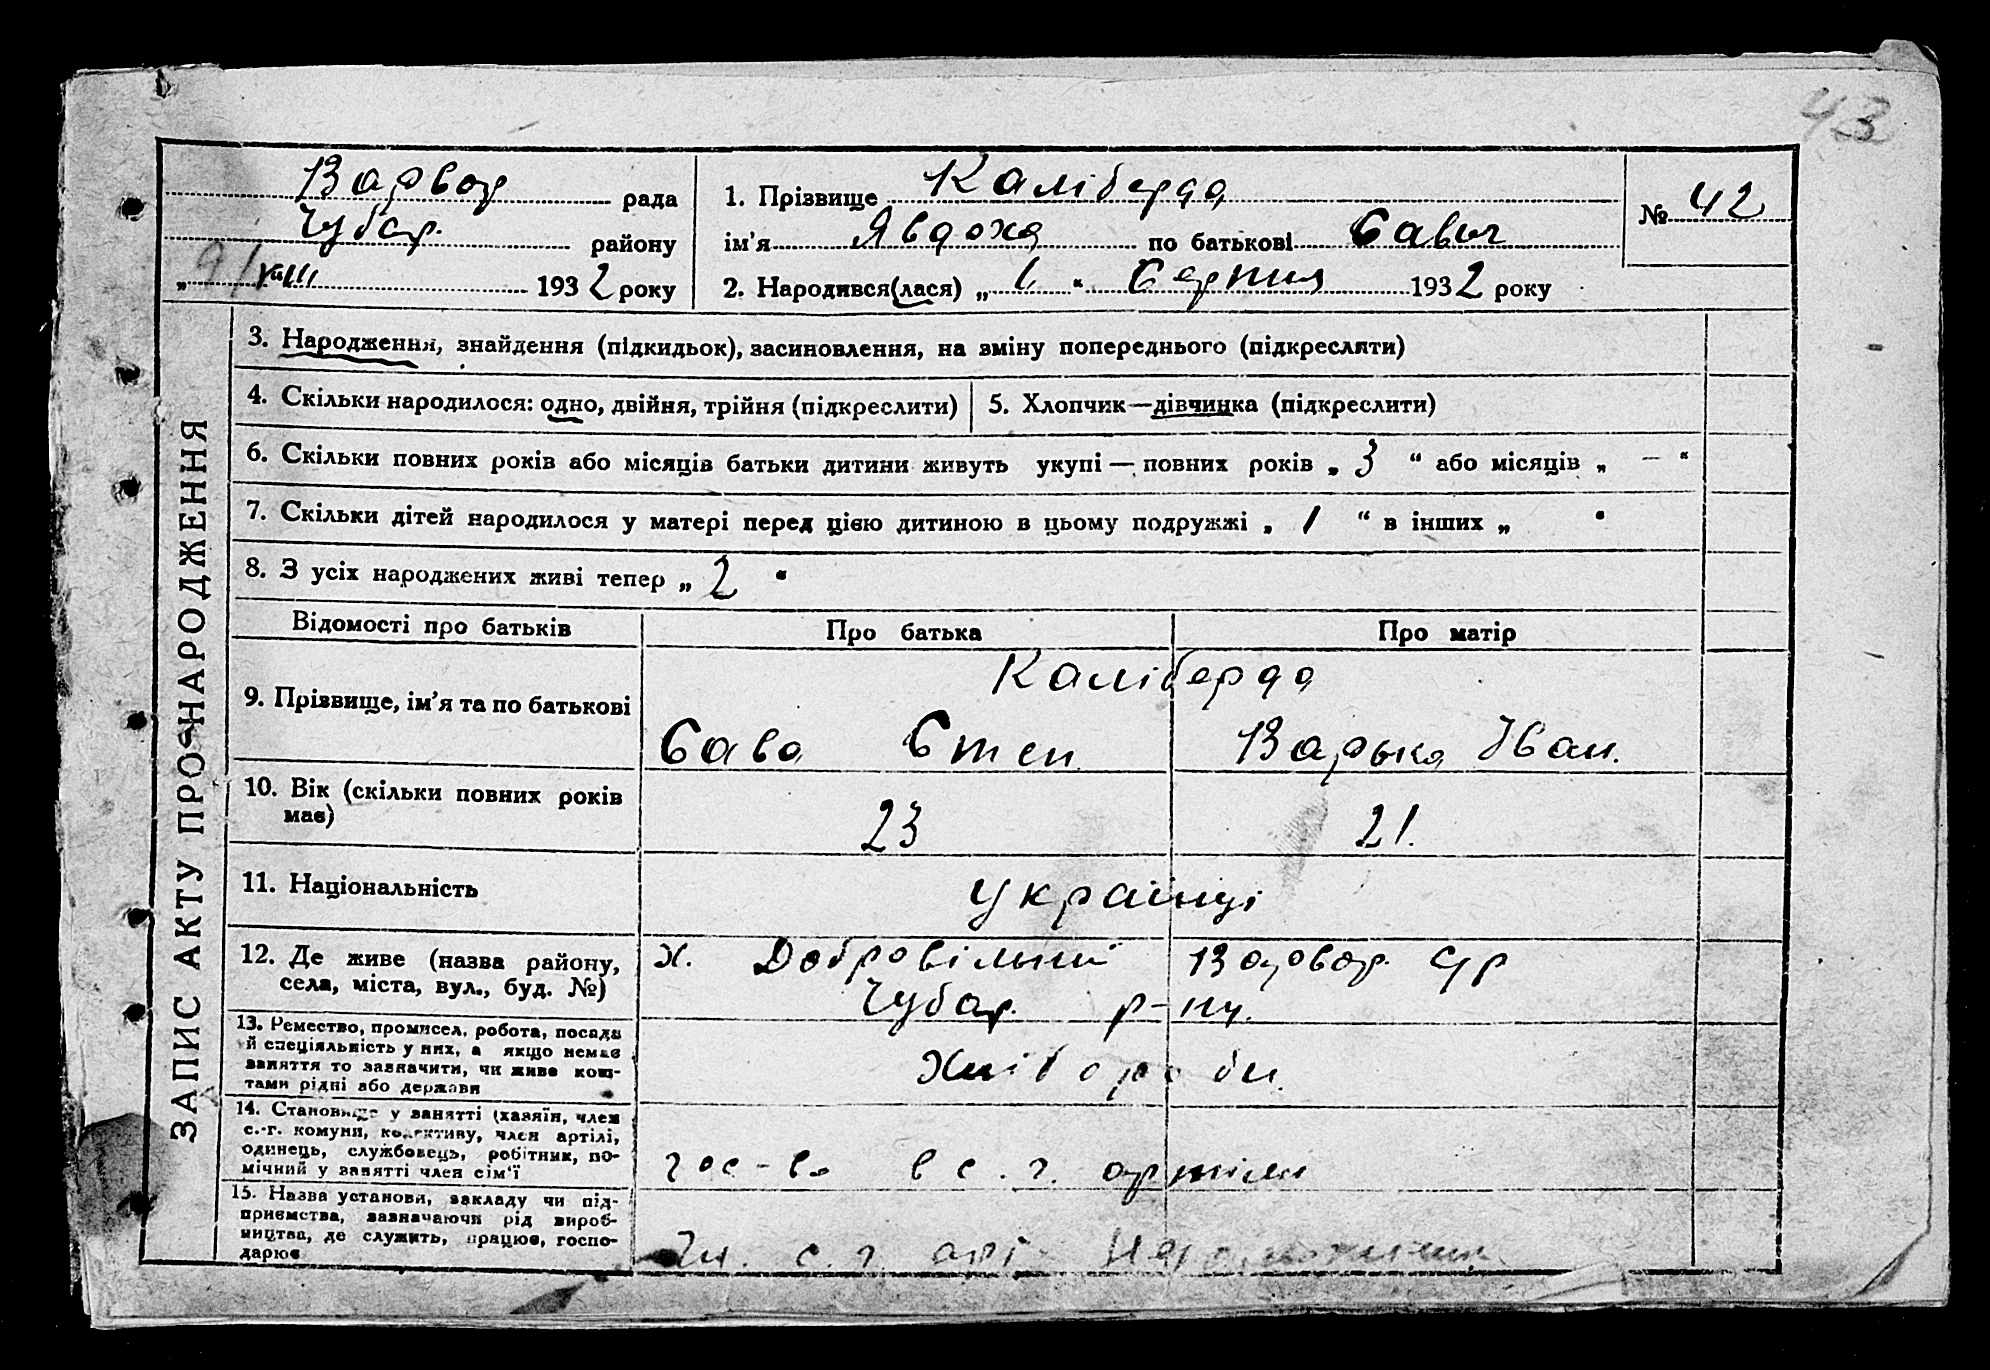 43
Варвар рада
Чубар. району
„ 9/VIII 1932 року
1. Прізвище Каліберда
ім'я Явдоха по батькові Савич
2. Народився(лася) „ 1 “ Серпня 1932 року
№ 42
ЗАПИС АКТУ ПРО НАРОДЖЕННЯ
3. Народження, знайдення (підкидьок), засиновлення, на зміну попереднього (підкреслити)
4. Скільки народилося: одно, двійня, трійня (підкреслити)
5. Хлопчик—дівчинка (підкреслити)
6. Скільки повних років або місяців батьки дитини живуть укупі — повних років „ 3 “ або місяців „ — “
7. Скільки дітей народилося у матері перед цією дитиною в цьому подружжі „ 1 “ в інших „ “
8. З усіх народжених живі тепер „ 2 “
Відомості про батьків
Про батька
Про матір
9. Прізвище, ім'я та по батькові
Каліберда
Сава Степ
Варька Іван.
10. Вік (скільки повних років
має)
23
21.
11. Національність
Українці
12. Де живе (назва району,
села, міста, вул., буд. №)
х. Добровільний Варвар. с/р
Чубар. р-ну.
13. Ремество, промисел, робота, посада
й спеціяльність у них, а якщо немає
заняття то зазначити, чи живе кош-
тами рідні або держави
Хлібороби
14. Становище у занятті (хазяїн, член
с.-г. комуни, колективу, член артілі,
одинець, службовець, робітник, по-
мічний у занятті член сім'ї
гос-во в с. г. артіли
15. Назва установи, закладу чи під-
приємства, зазначаючи рід вироб-
ництва, де служить, працює, госпо-
дарює
Чл. с. г. арт